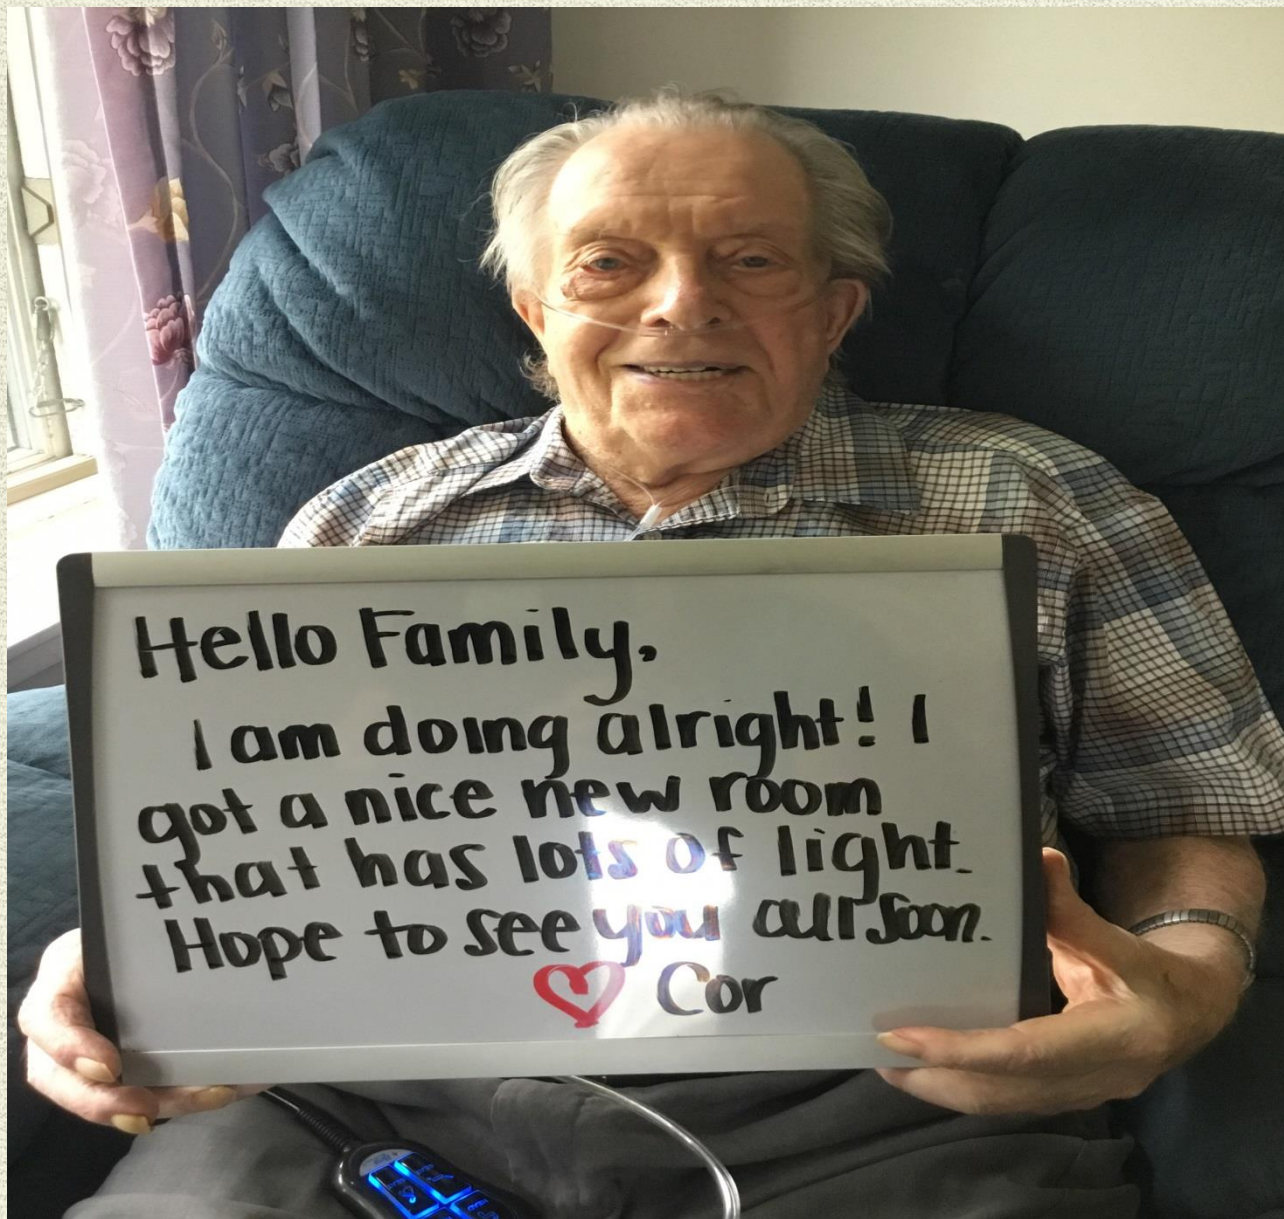 Hello Family,
I am doing alright! I
got a nice new room
that has lots of light.
Hope to see you all soon.
♥ Cor